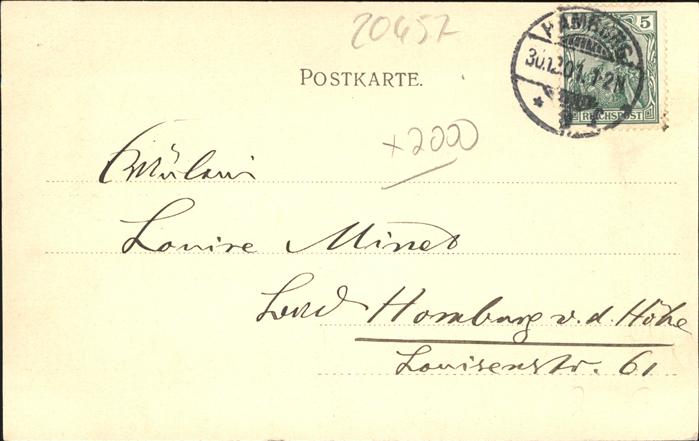 20457
POSTKARTE.
HAMBURG
30.12.01. 1-2N
* 1
5
REICHSPOST
+2000
Fräulein
Louise Minet
Bad Homburg v. d. Höhe
Louisenstr. 61